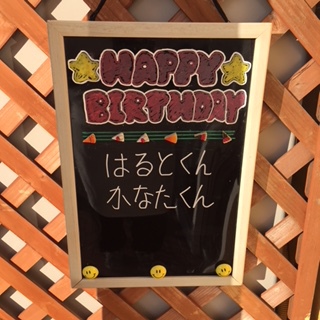 HAPPY
BIRTHDAY
はるとくん
かなたくん